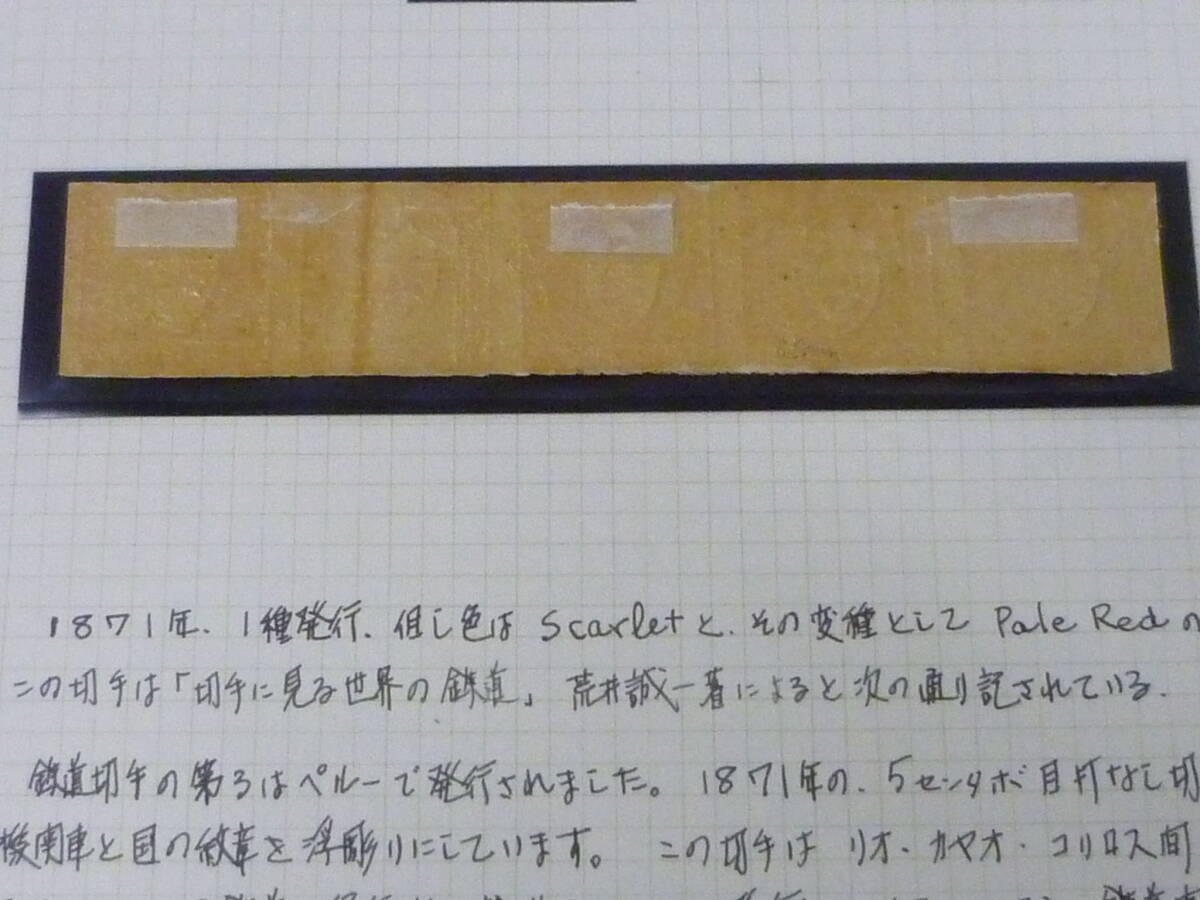 1871年、1種発行、但し色は Scarletと、その変種として Pale Redの
この切手は「切手に見る世界の鉄道」 荒井誠一著によると次の通り記されている.
鉄道切手の第3はペルーで発行されました。 1871年の、5センタボ目打なし切
機関車と国の紋章を浮彫りにしています。 この切手は リオ・カヤオ・コリロス間